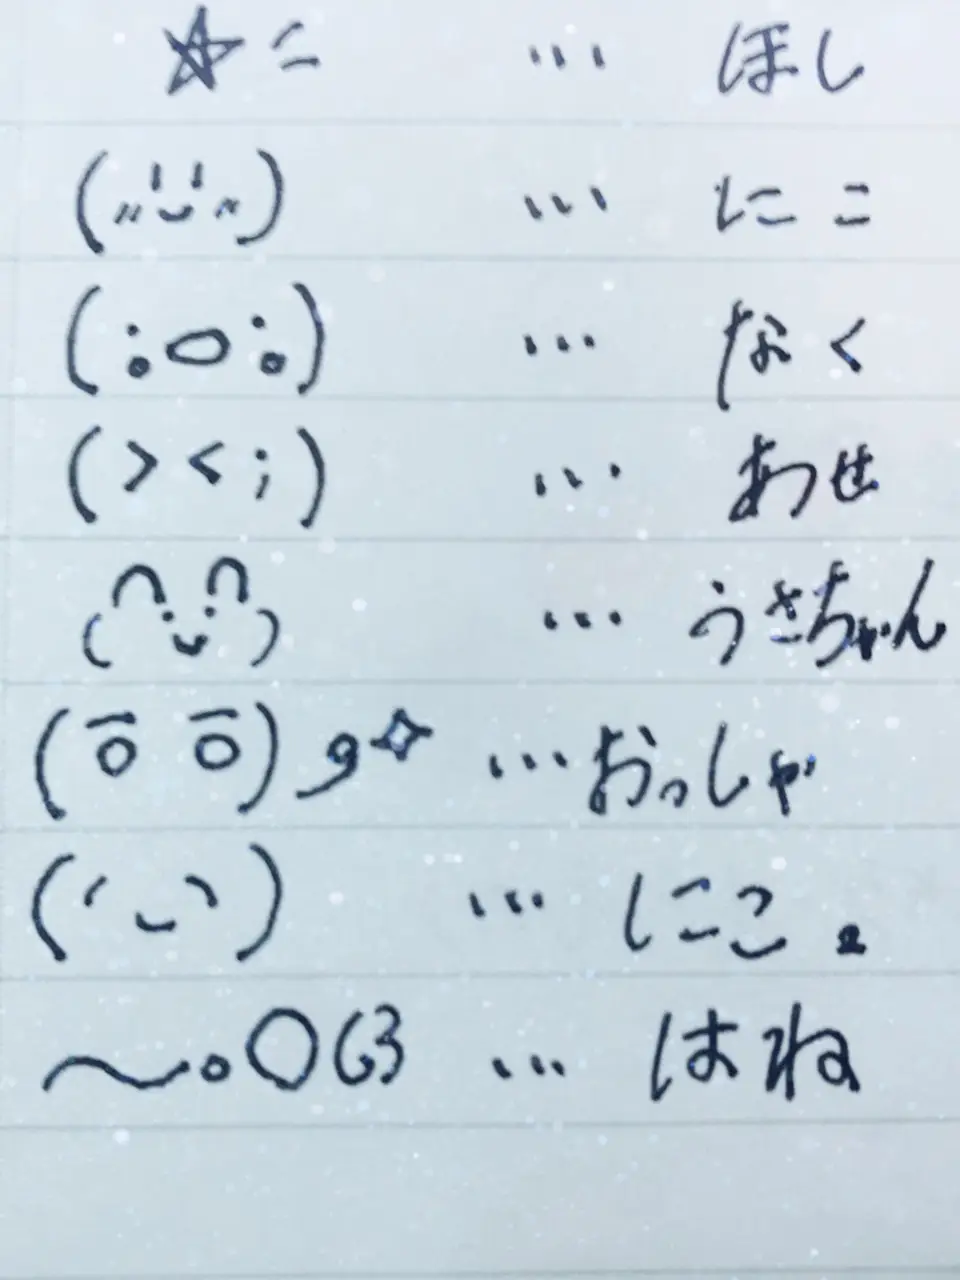 ☆ミ … ほし
(〃'ᴗ'〃) … にこ
(;o;) … なく
(><;) … あせ
ᐢ. .ᐢ … うさちゃん
(ō ō)و✧ … おっしゃ
(´ᴗ`) … にこ2
〜。○ଓ … はね